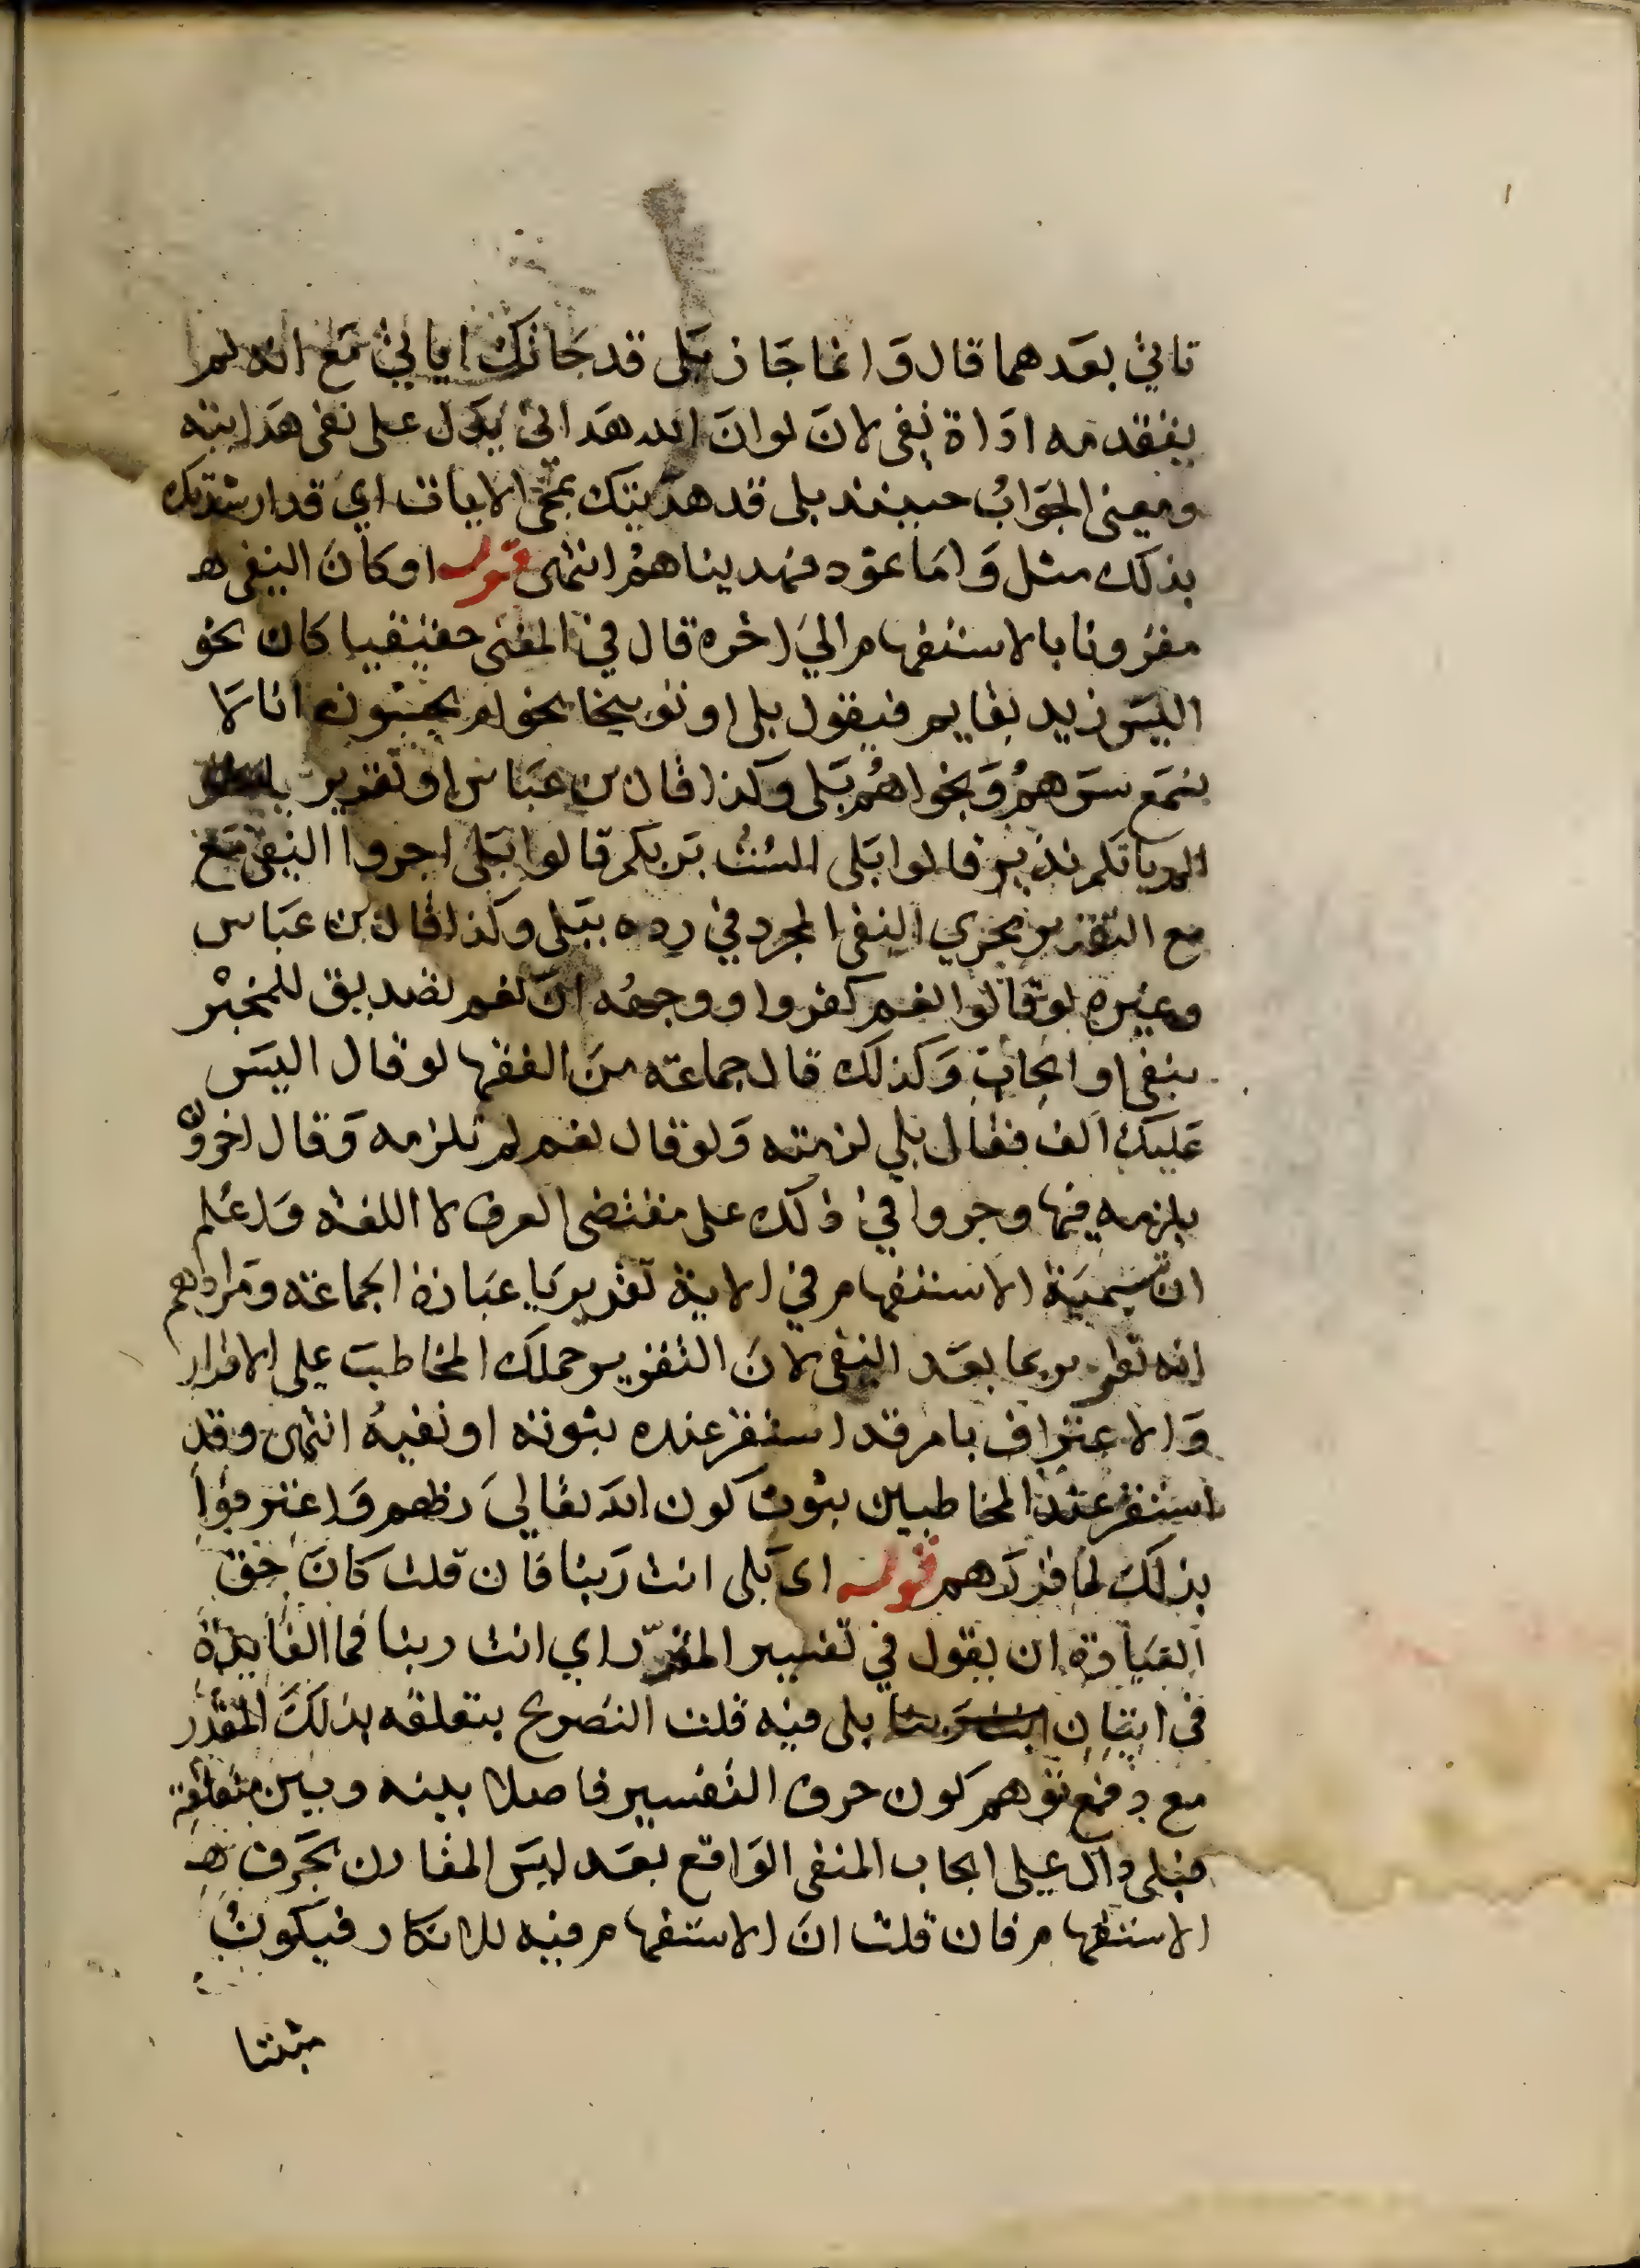 تاتي بعدهما قال وَانما جَاز بَلى قد جَاتك اياتي مَع انه لم
يتقدمه ادَاة نفي لانَ لو انَ الله هَداني يدل على نفي هَدايته
ومعنى الجوَابُ حينئذ بلى قد هديتك بمجي الايات اي قد ارشدتك
بذلك مثل وَامَا ثمود فهديناهمُ انتهى قوله او كان النفي ه
مقرونا بالاستفهام الي اخره قال في المغني حقيقيا كان نحو
اليسَ زيد بقايم فيقول بلى او توبيخا نحو ام يحسَبون انا لا
نسمَع سرَهمُ وَنجواهمُ بَلى وكذا قال بن عبَاس او تقرير
الم ياتكم نذير قالوا بَلى الستُ بَربكم قالوا بَلى اجروا النفي مَع
مع التقرير مجري النفي المجرد في رده ببَلى وكذا قال بن عبَاس
وغيره لو قالوا نعم كفروا ووجههُ انَ نعم تصديق للمخبْر
بنفي او ايجاب وَكذلك قال جماعَه من الفقها لو قال اليسَ
عَليك الف فقال بلي لزمته وَلو قال نعم لم تلزمه وَقال اخرونُ
يلزمه فيها وجروا في ذلك على مقتضى العرف لا اللغة وَاعلم
ان تسميَة الاستفهام في الاية تقريريَا عبَارة الجماعَه ومَرادهم
انه تقرير بما بعَد النفي لانَ التقرير حملك المخاطبَ علي الاقرار
وَالاعترَاف بامر قد استقر عنده ثبوته او نفيهُ انتهى وقد
استقر عند المخاطبين ثبوت كون الله تعَالىَ ربهم وَاعترفوا
بذلك لما قررَهم قوله اى بَلى انت رَبنا فان قلت كانَ حق
العبَارة ان يقول في تفسير المقدّر اي انت ربنا فما الفَايدة
في اتيَان انت رَبنا بلى فيه قلت التصريح بتعلقه بذلكَ المقدَر
مع دفع توهم كون حرف التفسير فاصلا بينه وبين متعلقه
فبلى دال علي ايجاب المنفي الوَاقع بعَد ليسَ المقارن بحَرف ه
الاستفهام فان قلت انَ الاستفهام فيه للانكار فيكونُ
مثبتا